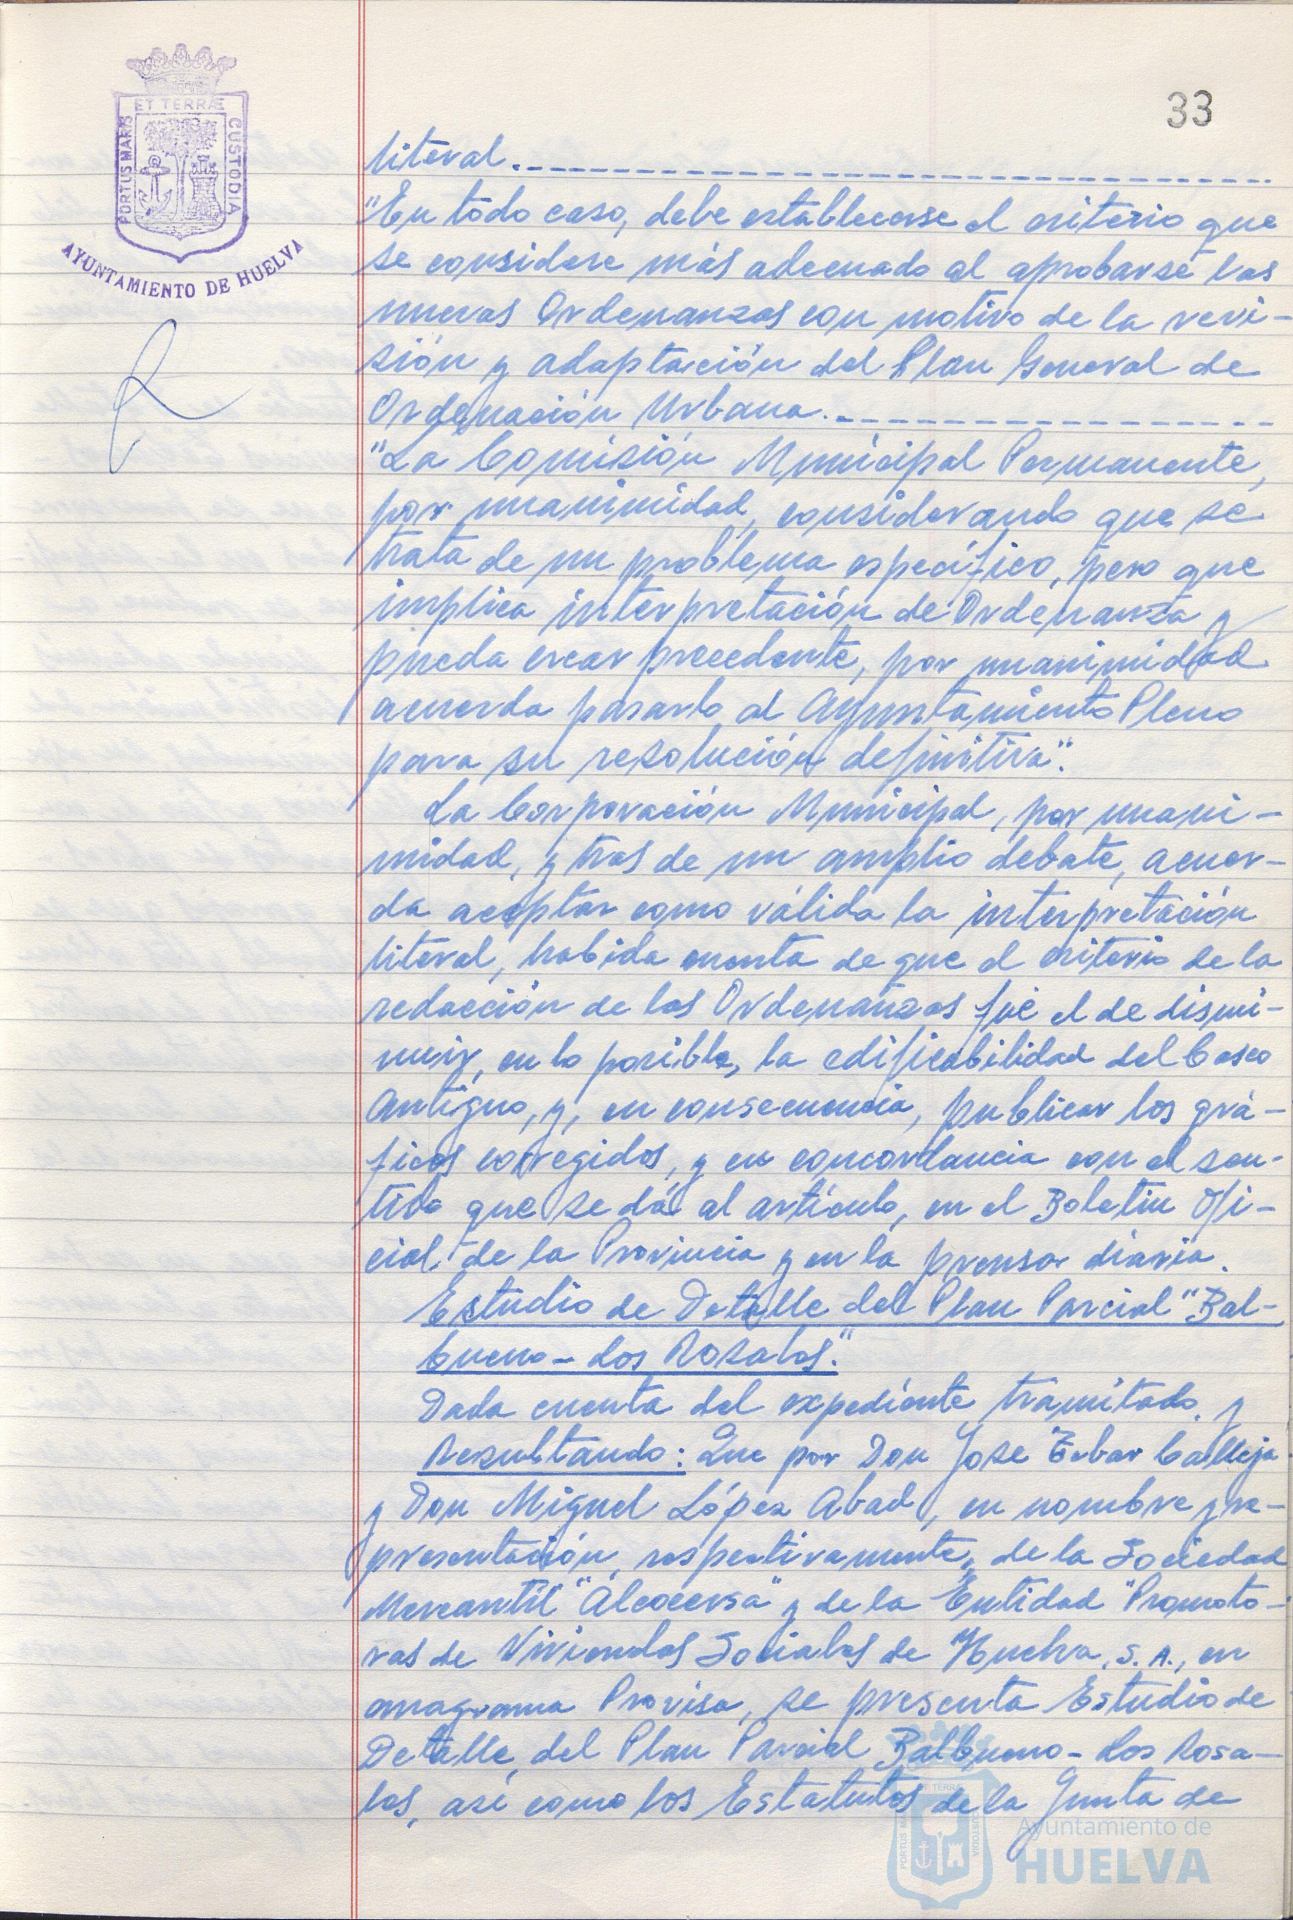 33
ET TERRÆ
PORTUS MARIS
CUSTODIA
AYUNTAMIENTO DE HUELVA
literal.
"En todo caso, debe establecerse el criterio que
se considere más adecuado al aprobarse las
nuevas Ordenanzas con motivo de la revi-
sión y adaptación del Plan General de
Ordenación Urbana.
"La Comisión Municipal Permanente,
por unanimidad, considerando que se
trata de un problema específico, pero que
implica interpretación de Ordenanza y
pueda crear precedente, por unanimidad
acuerda pasarlo al Ayuntamiento Pleno
para su resolución definitiva".
La Corporación Municipal, por unani-
midad, y tras de un amplio debate, acuer-
da aceptar como válida la interpretación
literal, habida cuenta de que el criterio de la
redacción de las Ordenanzas fué el de dismi-
nuir, en lo posible, la edificabilidad del Casco
Antiguo, y, en consecuencia, publicar los grá-
ficos corregidos, y en concordancia con el sen-
tido que se dá al artículo, en el Boletín Ofi-
cial de la Provincia y en la prensa diaria.
Estudio de Detalle del Plan Parcial "Bal-
bueno - Los Rosales."
Dada cuenta del expediente tramitado, y
Resultando: Que por Don José Calleja
y Don Miguel López Abad, en nombre y re-
presentación, respectivamente, de la Sociedad
Mercantil "Alcocersa" y de la Entidad "Promoto-
ras de Viviendas Sociales de Huelva, S. A., en
anagrama Provisa, se presenta Estudio de
Detalle, del Plan Parcial Balbueno - Los Rosa-
les, así como los Estatutos de la Junta de
ET TERRA
PORTUS MARIS
CUSTODIA
Ayuntamiento de
HUELVA